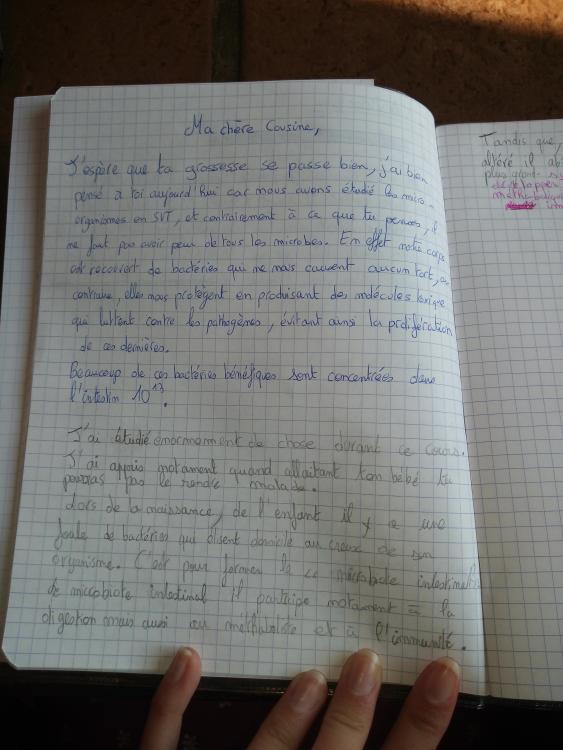 Ma chère Cousine,
J'espère que ta grossesse se passe bien, j'ai bien
pensé à toi aujourd'hui car nous avons étudié les micro-
organismes en SVT, et contrairement à ce que tu penses, il
ne faut pas avoir peur de tous les microbes. En effet notre corps
est recouvert de bactéries qui ne nous causent aucun tort, au
contraire, elles nous protègent en produisant des molécules toxique
qui luttent contre les pathogènes, évitant ainsi la prolifération
de ces dernières.
Beaucoup de ces bactéries bénéfiques sont concentrées dans
l'intestin 10¹³.
J'ai étudié enormement de chose durant ce cours.
J'ai appris notament quand allaitant ton bébé tu
pourras pas le rendre malade.
Lors de la naissance, de l'enfant il y a une
foule de bactéries qui élisent domicile au creux de son
organisme. C'est pour former le microbiote intestinal
de microbiote intestinal il participe notament à la
digestion mais aussi au métabolisme et à l'immunité.
Tandis que,
altéré il
plus grand
developper